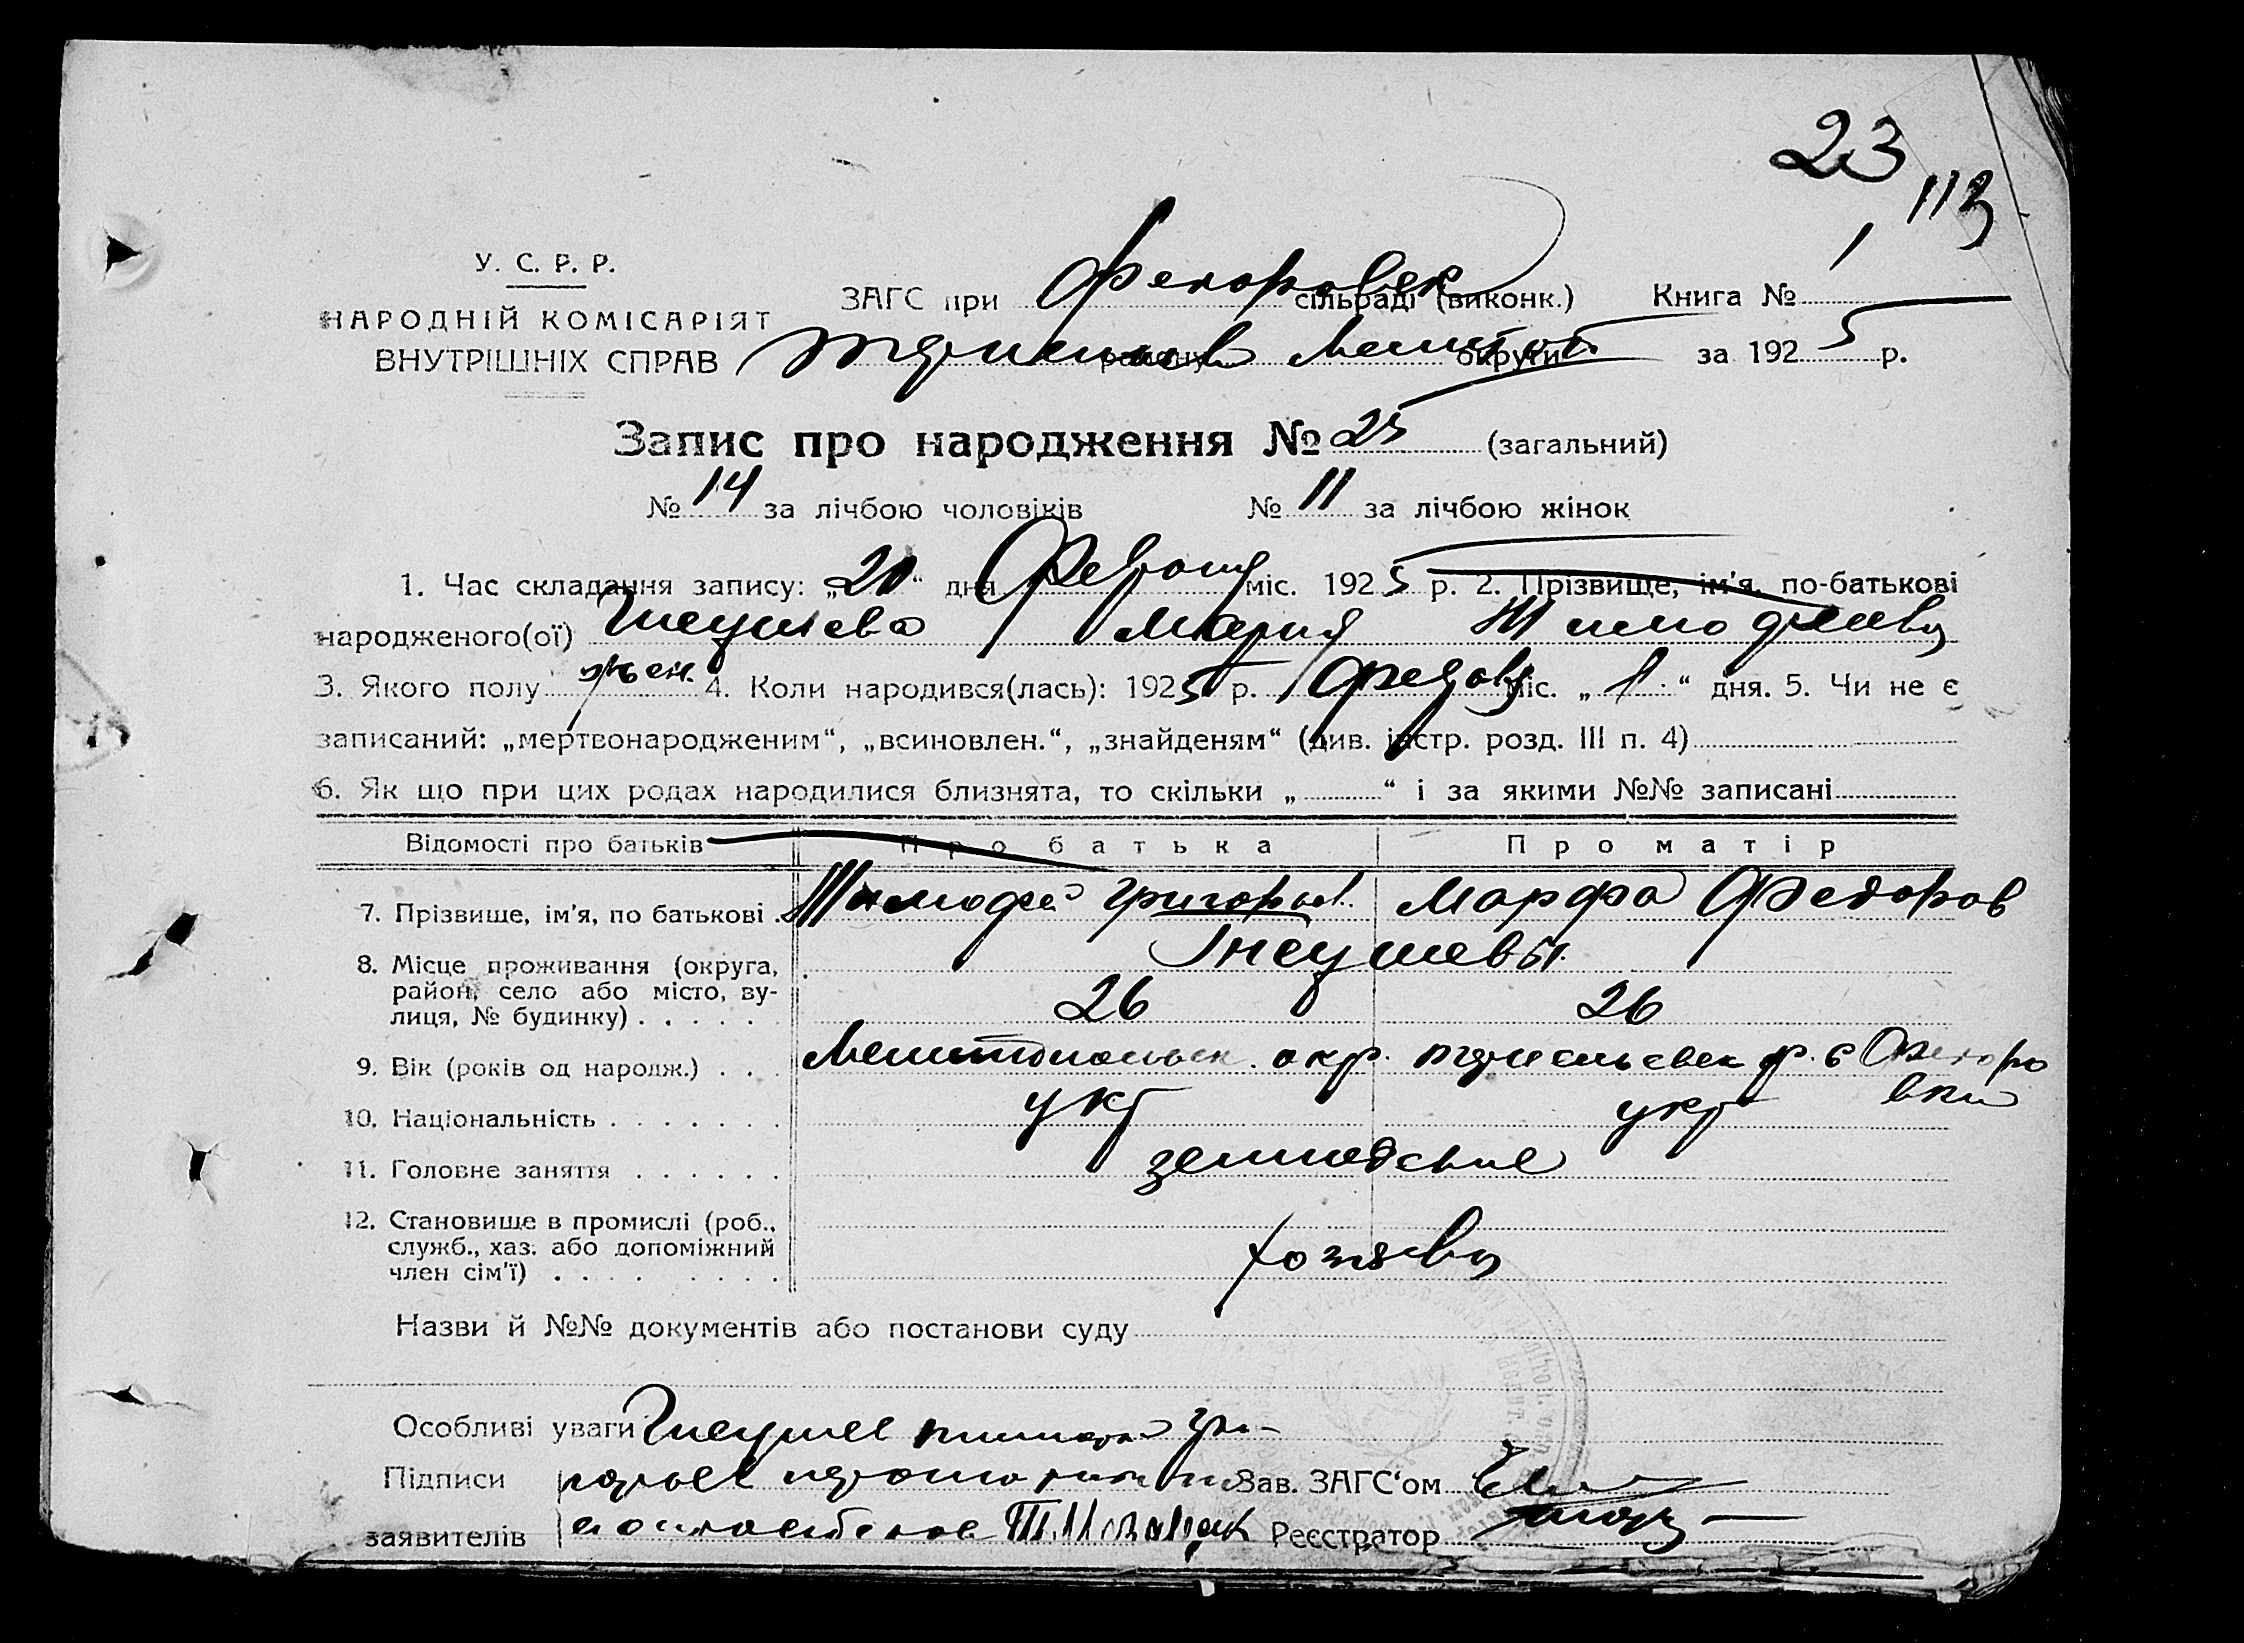 23
113
У. С. Р. Р.
НАРОДНІЙ КОМІСАРІЯТ
ВНУТРІШНІХ СПРАВ
ЗАГС при Федоровск сільраді (виконк.) Книга № 1
району Мелитоп округи за 1925 р.
Запис про народження № 25 (загальний)
№ 14 за лічбою чоловіків № 11 за лічбою жінок
1. Час складання запису: „20“ дня Февраля міс. 1925 р. 2. Прізвище, ім'я, по-батькові
народженого(ої) Гнеушева Мария Тимофеевн
3. Якого полу жен. 4. Коли народився(лась): 1925 р. міс. „ “ дня. 5. Чи не є
записаний: „мертвонародженим“, „всиновлен.“, „знайденям“ (див. інстр. розд. III п. 4)
6. Як що при цих родах народилися близнята, то скільки „ “ і за якими №№ записані
Відомості про батьків Про батька Про матір
7. Прізвише, ім'я, по батькові . Тимофей Григорьев. Марфа Федоров
Гнеушевы.
8. Місце проживання (округа,
район, село або місто, ву-
лиця, № будинку) . . . . . 26 26
9. Вік (років од народж.) . . . Мелитопольск. окр. р. с Федоро
вки
10. Національність . . . . . . . укр укр
11. Головне заняття . . . . . . земледелие
12. Становище в промислі (роб.,
служб., хаз. або допоміжний
член сім'ї) . . . . . . . . хозяева
Назви й №№ документів або постанови суду
Особливі уваги Гнеушев Тимофей Гри-
Підписи горьев Зав. ЗАГС‘ом
заявителів Реєстратор